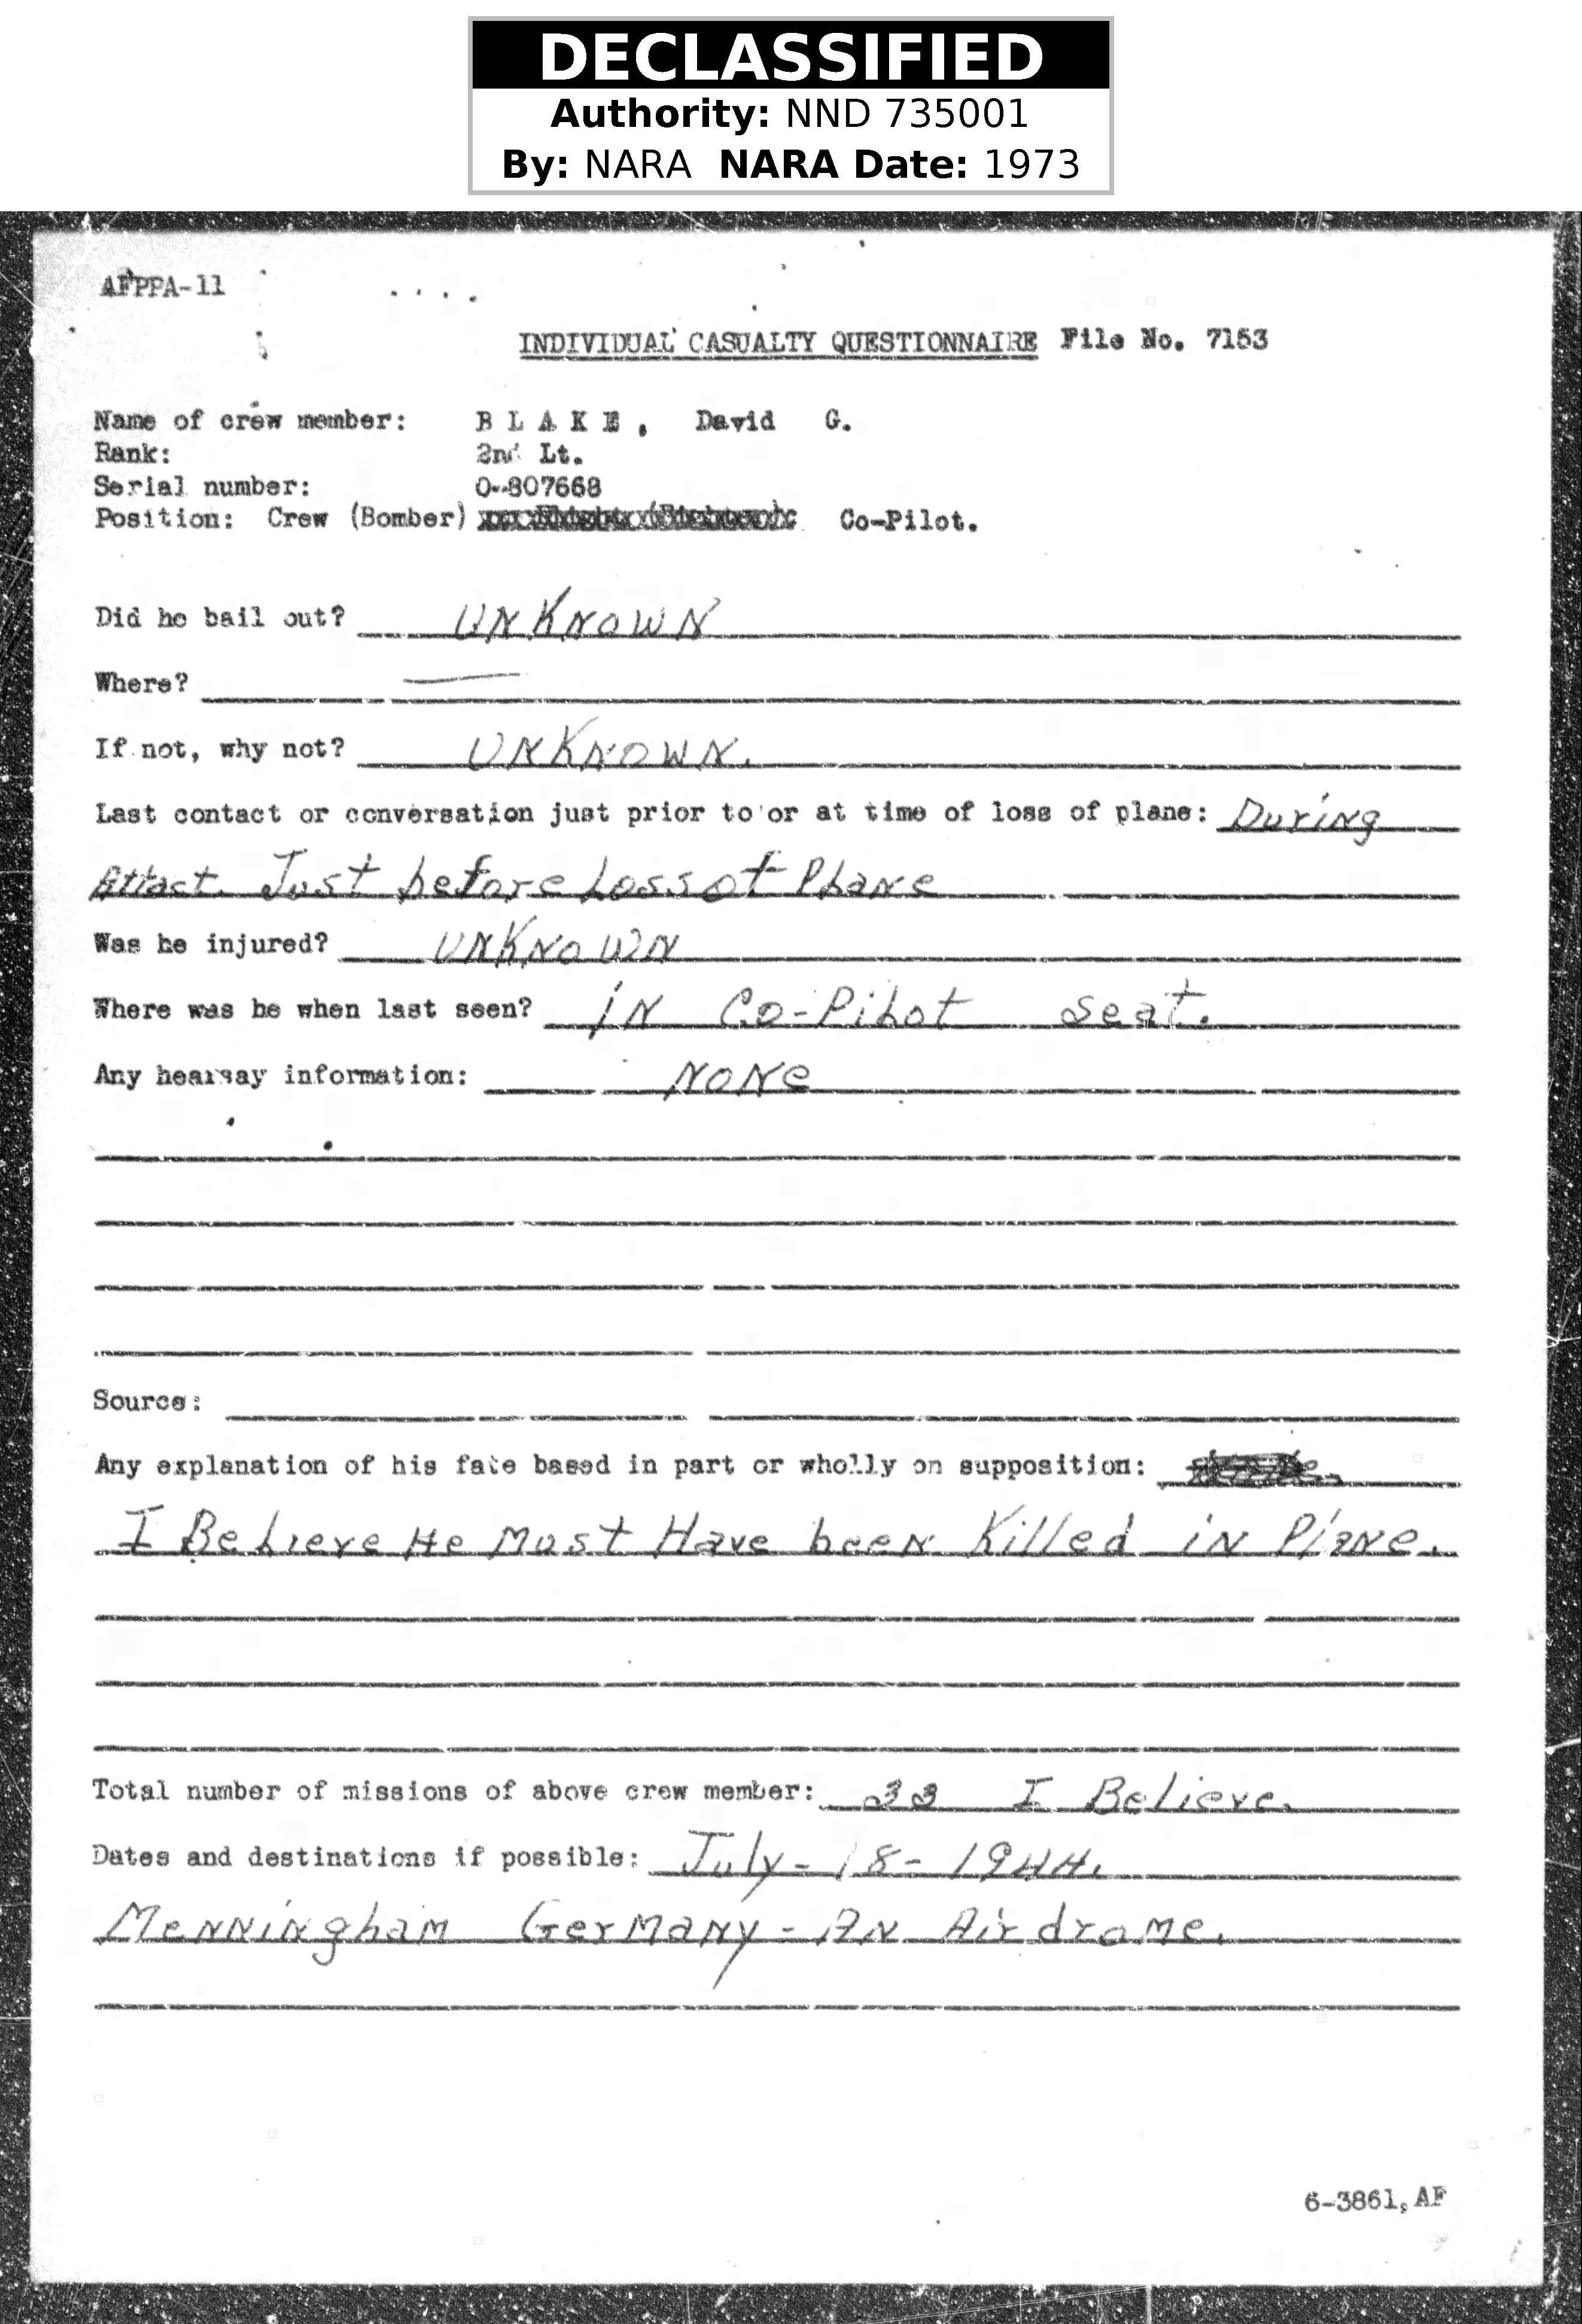 DECLASSIFIED
Authority: NND 735001
By: NARA NARA Date: 1973
AFPPA-11
INDIVIDUAL CASUALTY QUESTIONNAIRE File No. 7153
Name of crew member: B L A K E , David G.
Rank: 2nd Lt.
Serial number: O-807668
Position: Crew (Bomber) Co-Pilot.
Did he bail out? UNKNOWN
Where? —
If not, why not? UNKNOWN.
Last contact or conversation just prior to or at time of loss of plane: During
Attact. Just before Loss of Plane
Was he injured? UNKNOWN
Where was he when last seen? iN Co-Pilot seat.
Any hearsay information: NONe
Source:
Any explanation of his fate based in part or wholly on supposition:
I Believe He Must Have been Killed iN Plane.
Total number of missions of above crew member: 33 I Believe.
Dates and destinations if possible: July-18-1944.
MeNNiNgham GerMaNy - AN Airdrome.
6-3861, AF